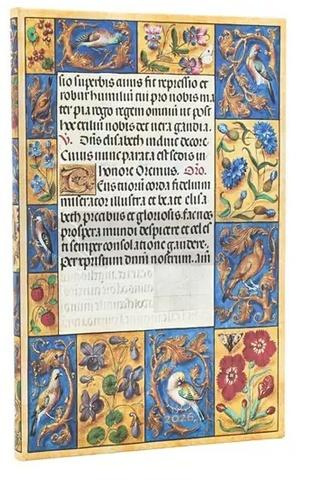 sio superbis alius fit repressio et
robur humiliū cui pro nobis ma
ter pia rego regem omniū ut post
hoc exiliū nobis det vera gaudia.
V. Dūs elisabeth induit decore
Cuius nunc parata est sedis in
honore Oremus. Oro.
Tuis tuorū corda fidelium
miserator illustra et beate elisa
beth precibus et gloriosis fac nos
prospera mundi despicere et celes
ti semper consolatione gaudere.
Per xpistum dnm nostrum. am
2026